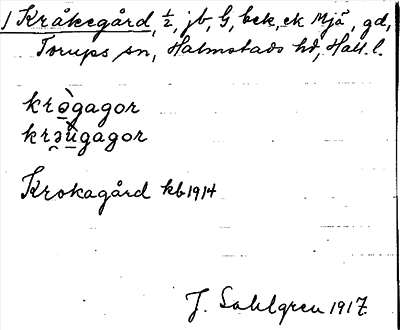 1 Kråkegård, ½, jb, G, bek, ek Mjä, gd,
Torups sn, Halmstads hd, Hall. l.
krə̀gagor
krə̯ùgagor
Krokagård kb 1914
J. Sahlgren 1917.